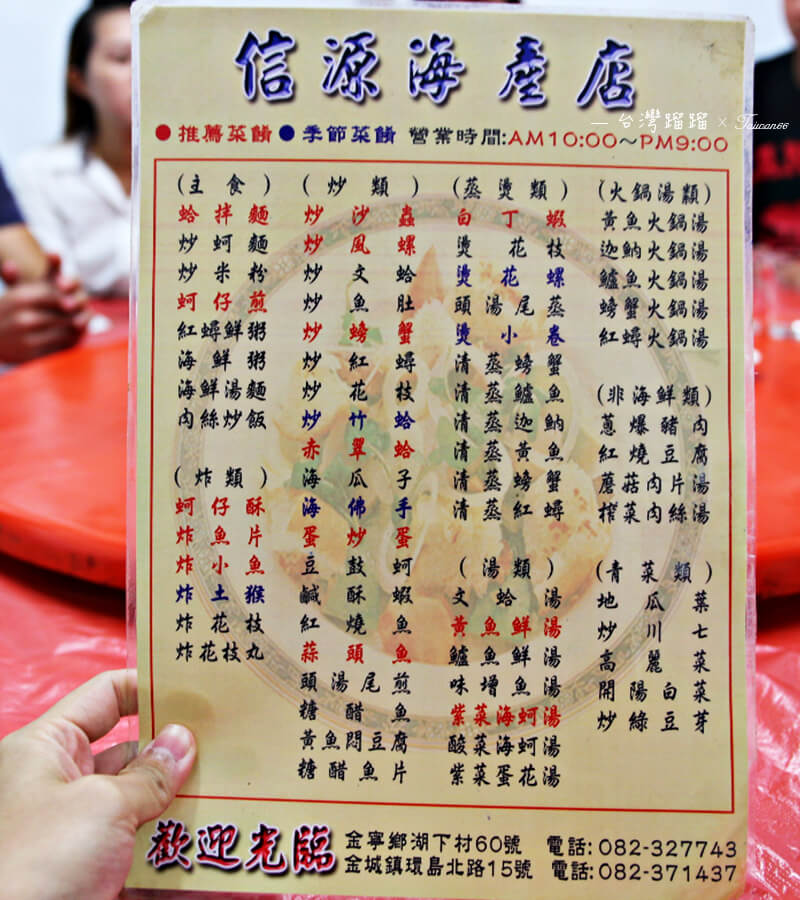 信源海產店
— 台灣蹓蹓 × Taiwan66
●推薦菜餚●季節菜餚 營業時間:AM10:00~PM9:00
(主食)
蛤拌麵
炒蚵麵
炒米粉
蚵仔煎
紅蟳鮮粥
海鮮粥
海鮮湯麵
肉絲炒飯
(炸類)
蚵仔酥
炸魚片
炸小魚
炸土猴
炸花枝
炸花枝丸
(炒類)
炒沙蟲
炒風螺
炒文蛤
炒魚肚
炒螃蟹
炒紅蟳
炒花枝
炒竹蛤
赤翠蛤
海瓜子
海佛手
蛋炒蛋
豆鼓蚵
鹹酥蝦
紅燒魚
蒜頭魚
頭湯尾煎
糖醋魚
黃魚悶豆腐
糖醋魚片
(蒸燙類)
白丁蝦
燙花枝
燙花螺
頭湯尾蒸
燙小卷
清蒸螃蟹
清蒸鱸魚
清蒸迦魶
清蒸黃魚
清蒸螃蟹
清蒸紅蟳
(湯類)
文蛤湯
黃魚鮮湯
鱸魚鮮湯
味增魚湯
紫菜海蚵湯
酸菜海蚵湯
紫菜蛋花湯
(火鍋湯類)
黃魚火鍋湯
迦魶火鍋湯
鱸魚火鍋湯
螃蟹火鍋湯
紅蟳火鍋湯
(非海鮮類)
蔥爆豬肉
紅燒豆腐
蘑菇肉片湯
榨菜肉絲湯
(青菜類)
地瓜葉
炒川七
高麗菜
開陽白菜
炒綠豆芽
歡迎光臨
金寧鄉湖下村60號 電話:082-327743
金城鎮環島北路15號 電話:082-371437